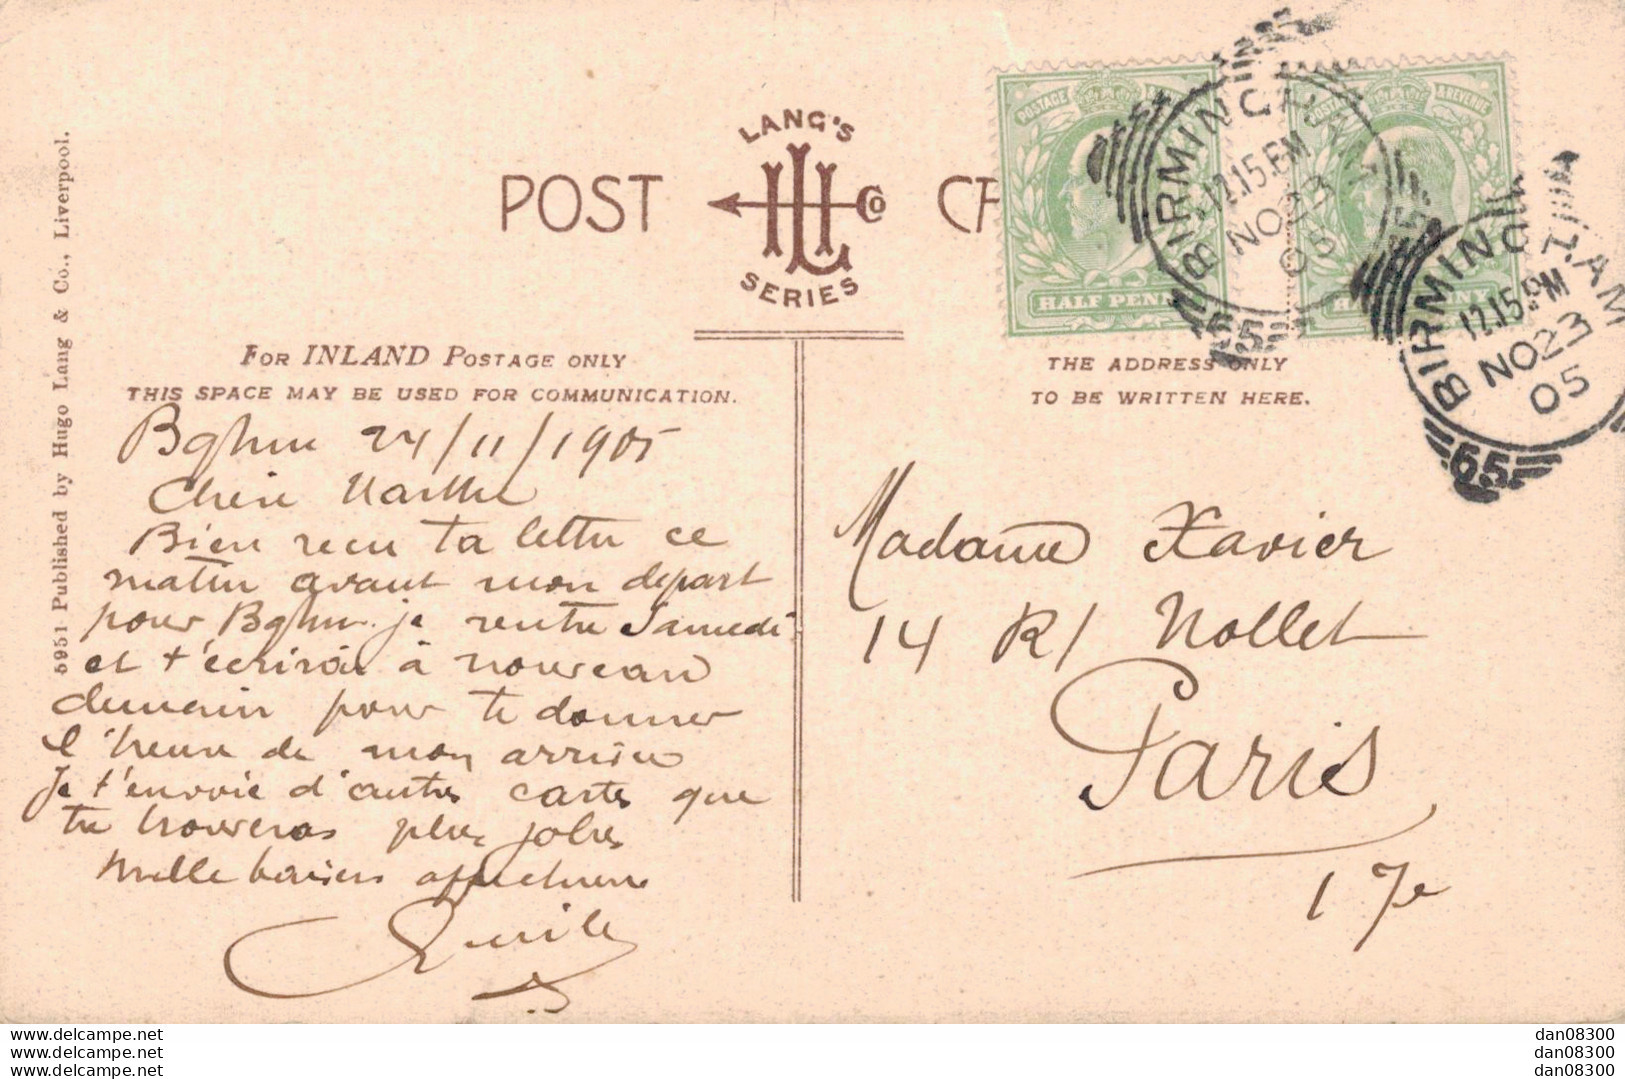 5951 Published by Hugo Lang & Co., Liverpool.
LANG'S
POST
Co
SERIES
FOR INLAND POSTAGE ONLY
THIS SPACE MAY BE USED FOR COMMUNICATION.
THE ADDRESS ONLY
TO BE WRITTEN HERE.
POSTAGE
HALF PENNY
POSTAGE & REVENUE
BIRMINGHAM
12.15.PM
NO 23
05
65
BIRMINGHAM
12.15.PM
NO 23
05
65
Bghm 24/11/1905
Chère Marthe
Bien recu ta lettre ce
matin avant mon départ
pour Bghm. je rentre Samedi
et t'écrirai à nouveau
demain pour te donner
l'heure de mon arrivée
Je t'envoie d'autres cartes que
tu trouveras plus jolies
Mille baisers affectueux
Emile
Madame Xavier
14 R/ Nollet
Paris
17e
www.delcampe.net
www.delcampe.net
www.delcampe.net
dan08300
dan08300
dan08300